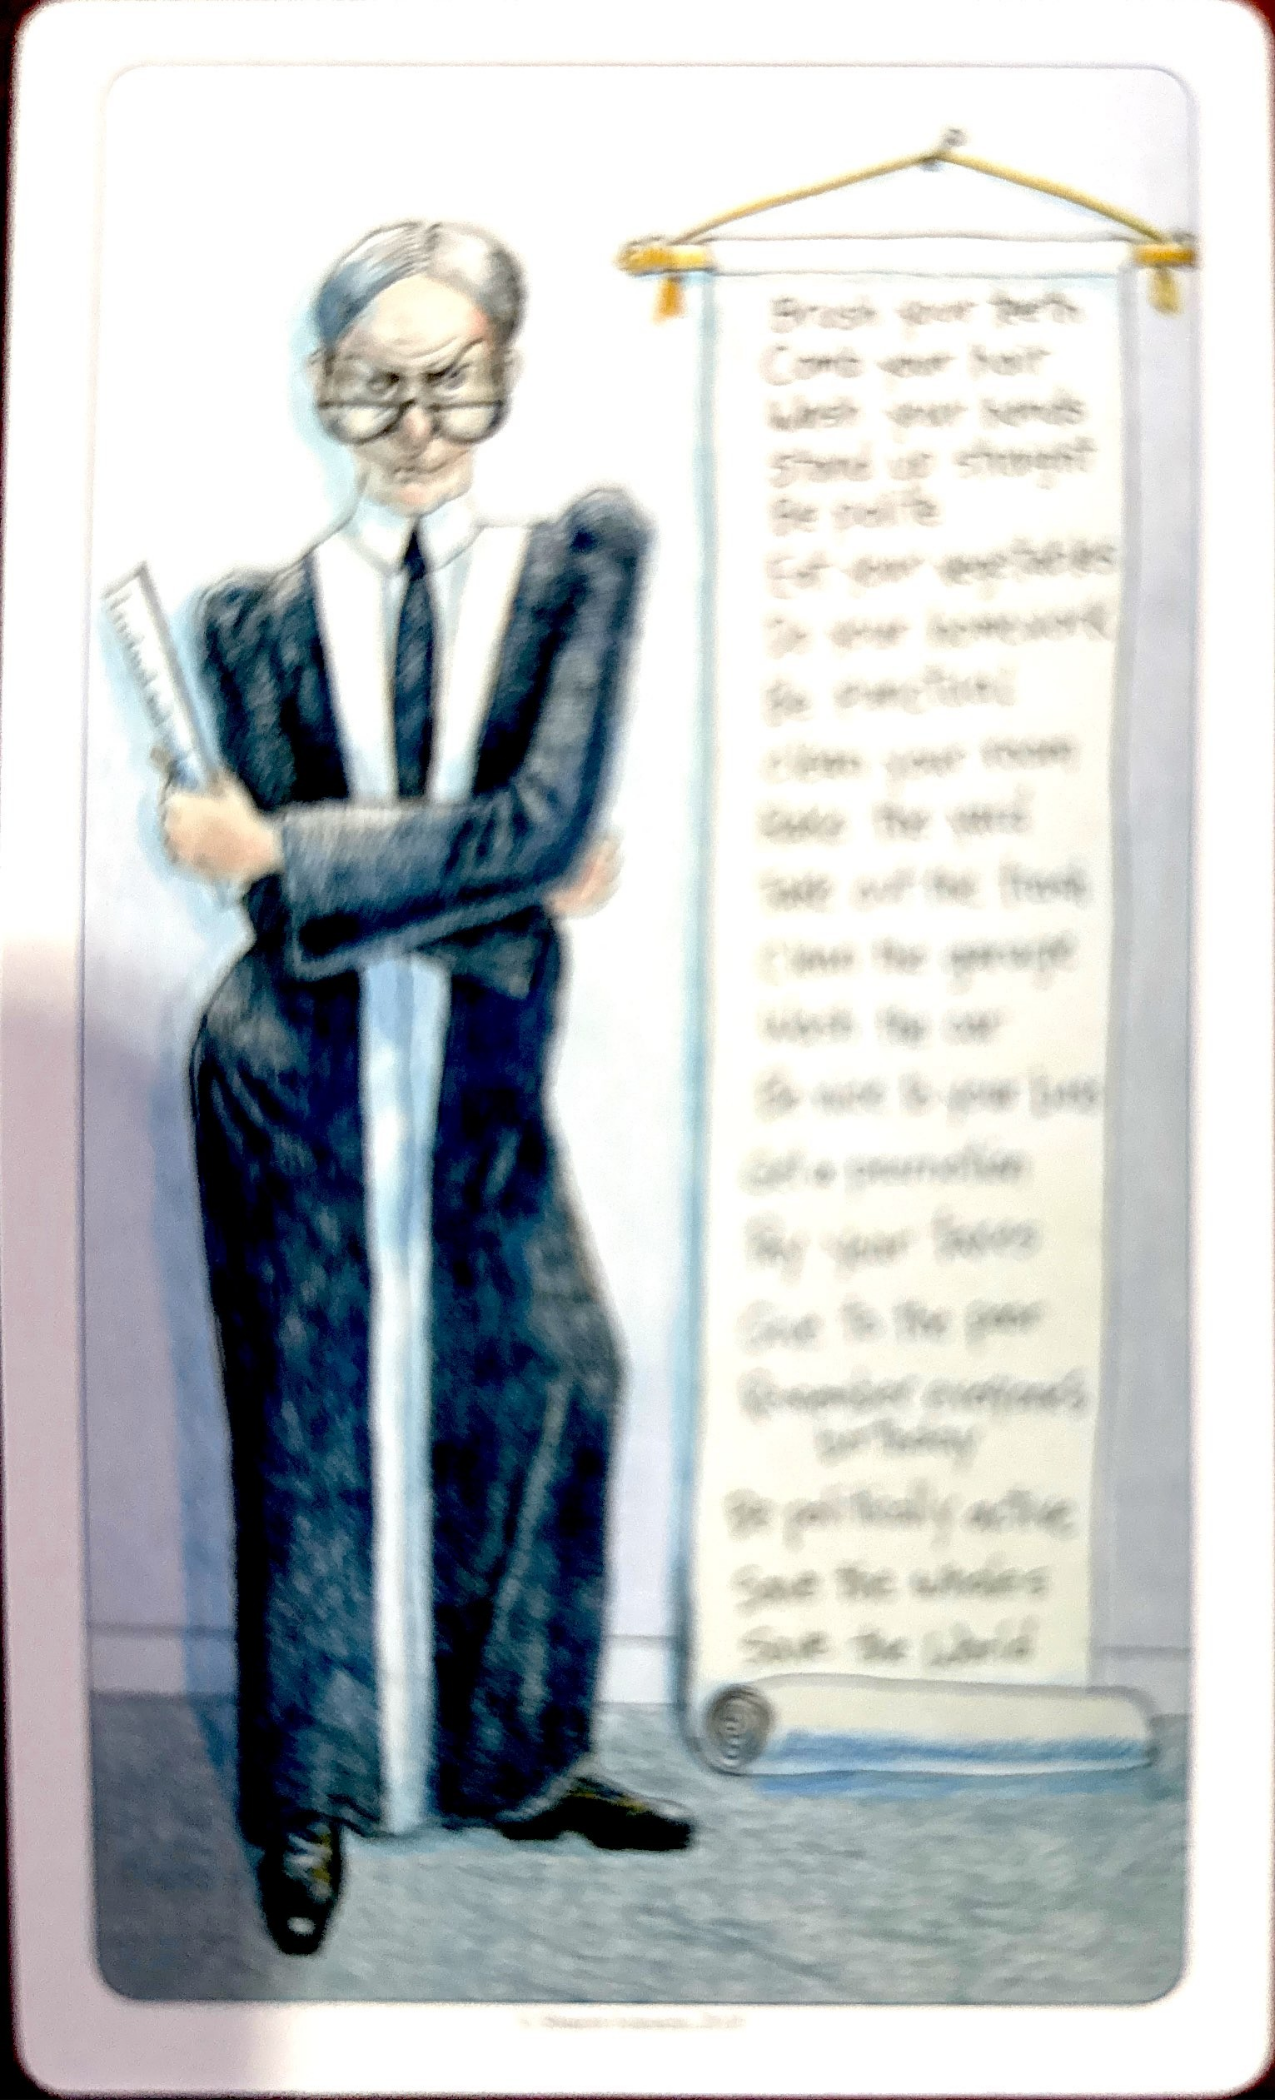 Brush your teeth
Comb your hair
Wash your hands
Stand up straight
Be polite
Eat your vegetables
Do your homework
Be punctual
Clean your room
Rake the yard
Take out the trash
Clean the garage
Wash the car
Be nice to your boss
Get a promotion
Pay your taxes
Give to the poor
Remember everyone's
birthday
Be politically active
Save the whales
Save the World